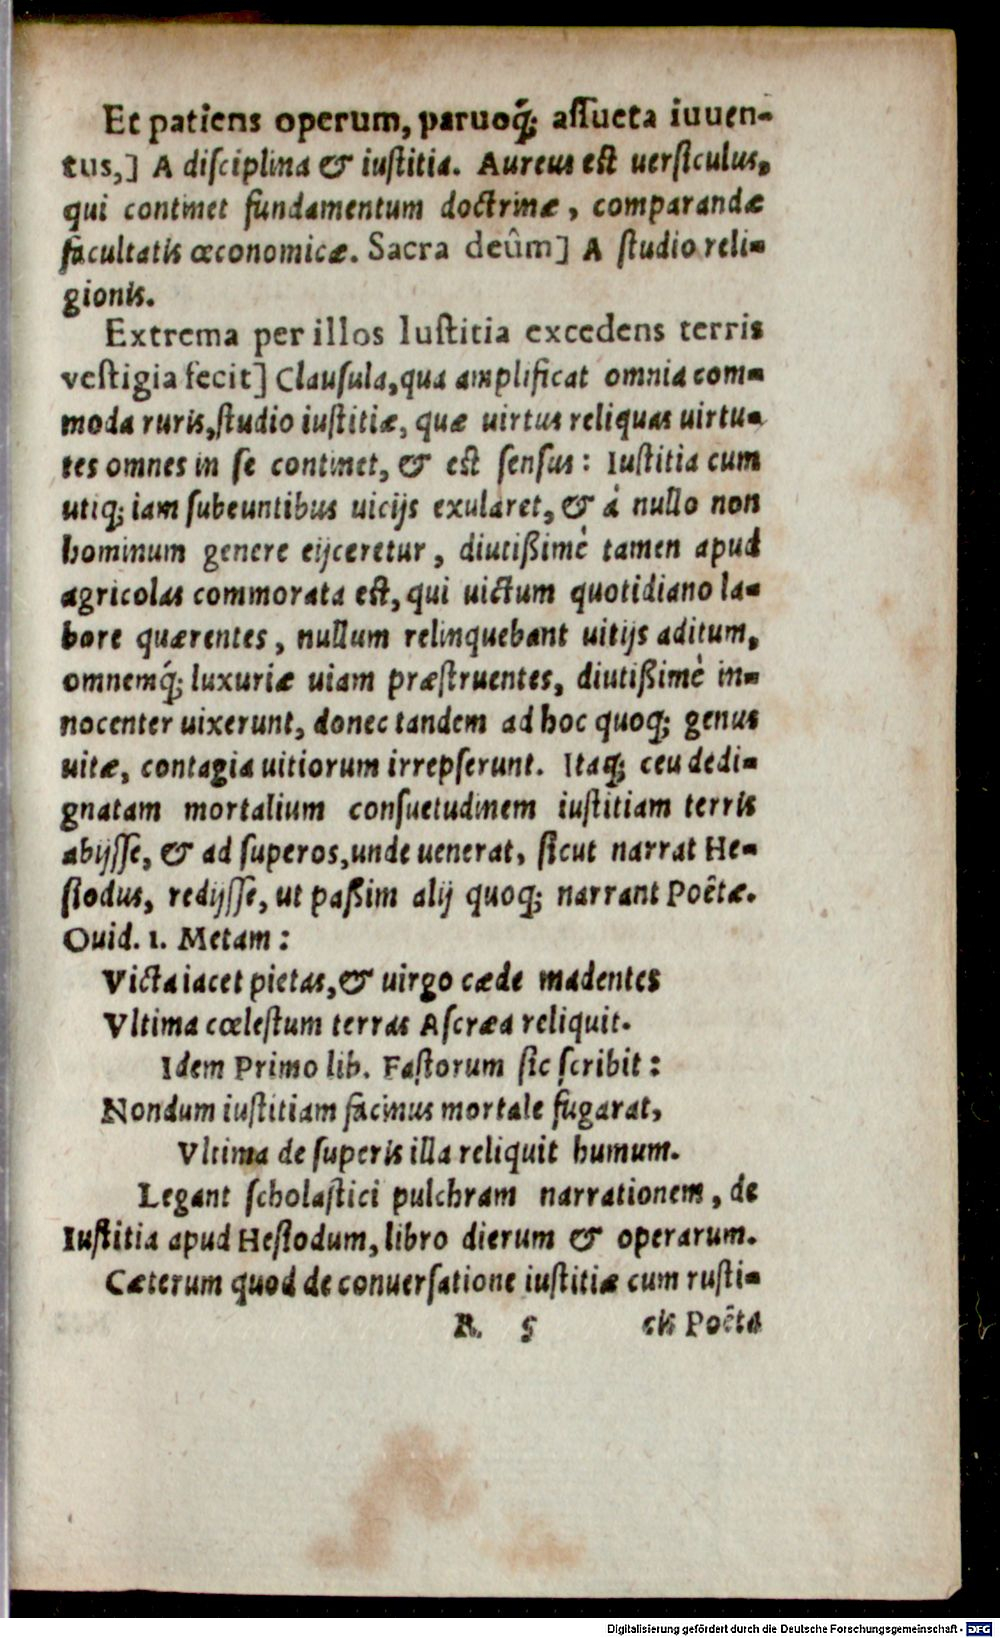 Et patiens operum, paruoq́; assueta iuuen-
tus,] A disciplina & iustitia. Aureus est uersiculus,
qui continet fundamentum doctrinæ, comparandæ
facultatis œconomicæ. Sacra deûm] A studio reli-
gionis.
Extrema per illos Iustitia excedens terris
vestigia fecit] Clausula, qua amplificat omnia com-
moda ruris, studio iustitiæ, quæ uirtus reliquas uirtu-
tes omnes in se continet, & est sensus: Iustitia cum
utiq; iam subeuntibus uicijs exularet, & à nullo non
hominum genere eijceretur, diutißimè tamen apud
agricolas commorata est, qui uictum quotidiano la-
bore quærentes, nullum relinquebant uitijs aditum,
omnemq́; luxuriæ uiam præstruentes, diutißimè in-
nocenter uixerunt, donec tandem ad hoc quoq; genus
uitæ, contagia uitiorum irrepserunt. Itaq; ceu dedi-
gnatam mortalium consuetudinem iustitiam terris
abijsse, & ad superos, unde uenerat, sicut narrat He-
siodus, redijsse, ut paßim alij quoq; narrant Poëtæ.
Ouid. 1. Metam:
Victa iacet pietas, & uirgo cæde madentes
Vltima cœlestum terras Ascræa reliquit.
Idem Primo lib. Fastorum sic scribit:
Nondum iustitiam facinus mortale fugarat,
Vltima de superis illa reliquit humum.
Legant scholastici pulchram narrationem, de
Iustitia apud Hesiodum, libro dierum & operarum.
Cæterum quod de conuersatione iustitiæ cum rusti-
R 5 cis Poëta
Digitalisierung gefördert durch die Deutsche Forschungsgemeinschaft - DFG